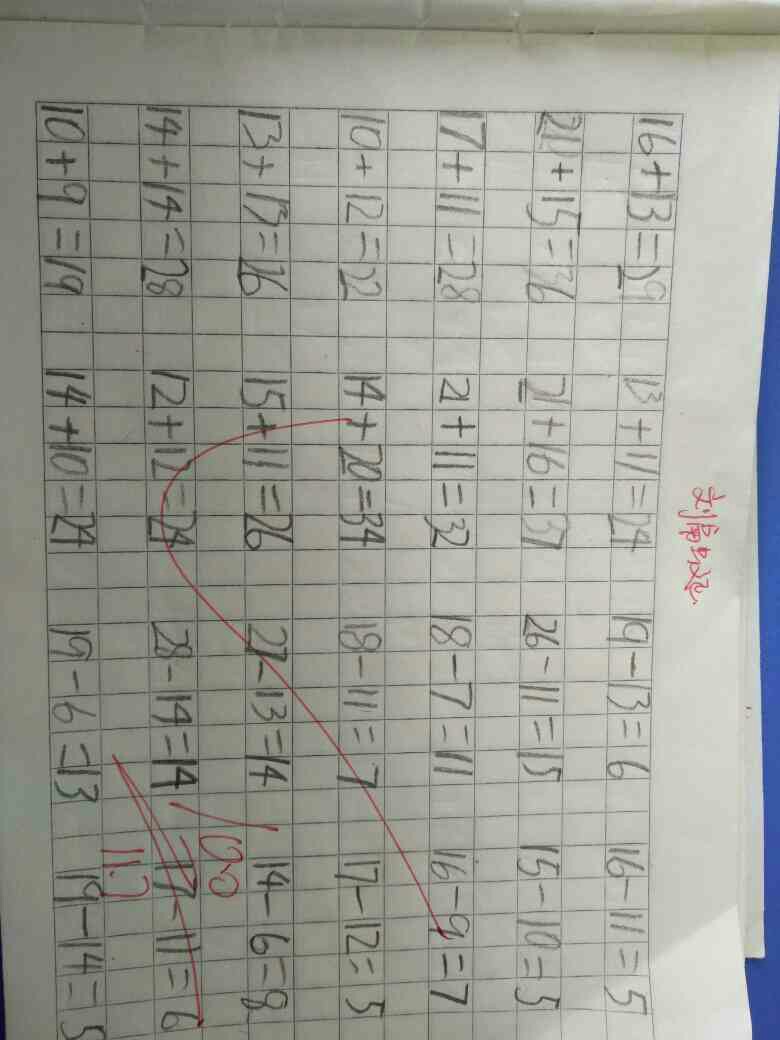 16+13=29 13+11=24 19-13=6 16-11=5
21+15=36 21+16=37 26-11=15 15-10=5
17+11=28 21+11=32 18-7=11 16-9=7
10+12=22 14+20=34 18-11=7 17-12=5
13+13=26 15+11=26 27-13=14 14-6=8
100
14+14=28 12+12=24 28-14=14 17-11=6
11.7
10+9=19 14+10=24 19-6=13 19-14=5